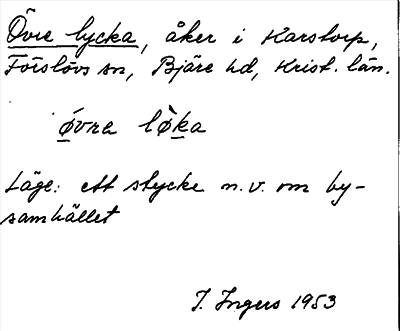 Övre lycka, åker i Karstorp,
Förslövs sn, Bjäre hd, Krist. län.
ǿvrɐ lø̀ka
Läge: ett stycke n.v. om by-
samhället
I. Ingers 1953